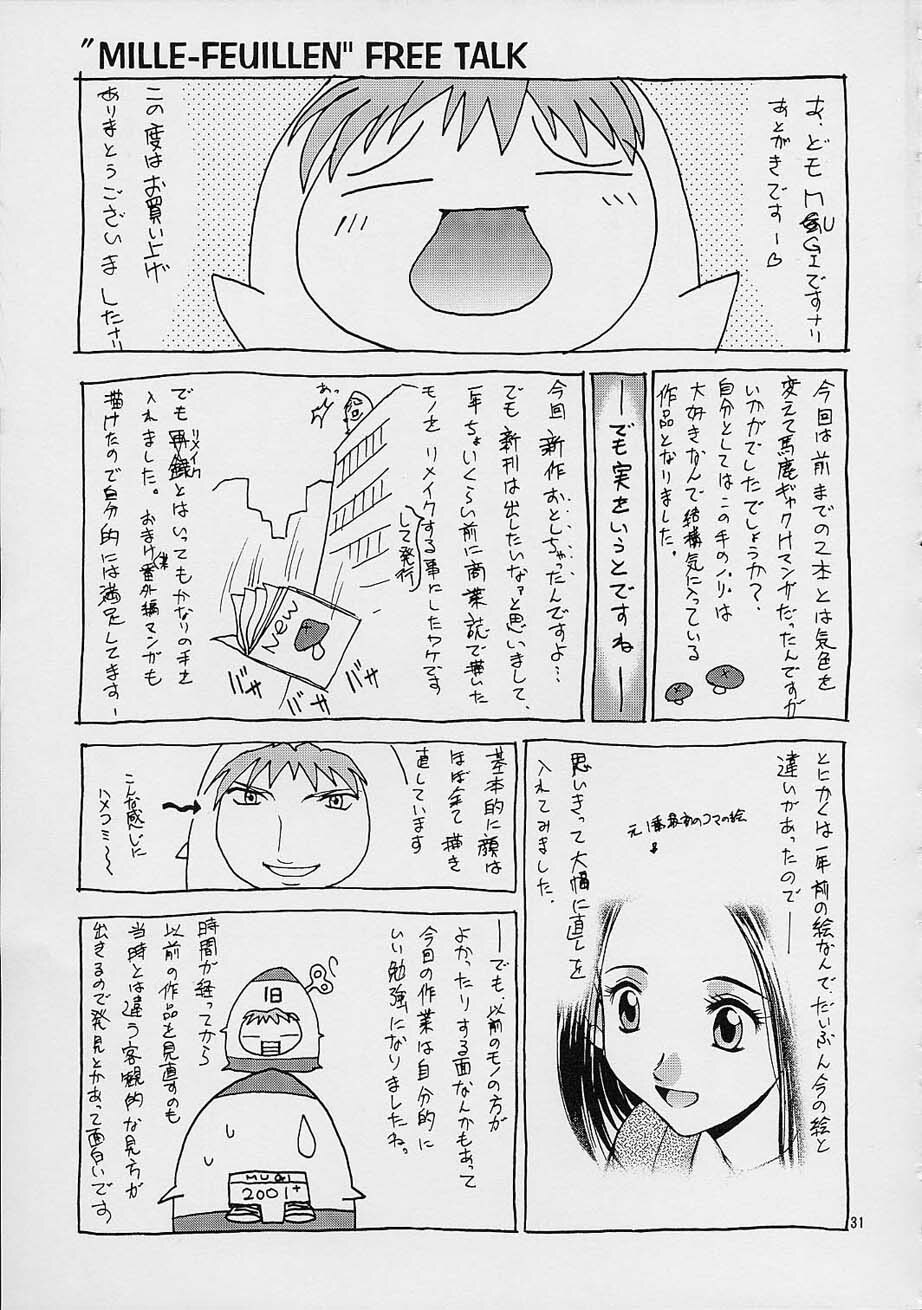 "MILLE-FEUILLEN" FREE TALK
あ、ども MUGIですナリ
あとがきですー
この度はお買い上げ
ありまとうございましたナリ
今回は前までの2本とは気色を
変えて馬鹿ギャグマンガだったんですが
いかがでしたでしょうか?
自分としてはこの手のノリは
大好きなんで結構気に入っている
作品となりました。
―でも実をいうとですね―
今回 新作おとしちゃったんですよ…
でも 新刊は出したいなァと思いまして、
一年ちょいくらい前に商業誌で描いた
モノを リメイクする事にしたワケです
して発行
あっ
New
バサ
バサ
バサ
でもリメイクとはいってもかなりの手を
入れました。おまけ番外編マンガも
描けたので自分的には満足してますー
とにかくは一年前の絵なんで、だいぶん今の絵と
違いがあったので――
思いきって大幅に直しを
入れてみました。
元1番最初のコマの絵
基本的に顔は
ほぼ全て描き
直しています
こんな感じに
ハメコミ〜
――でも、以前のモノの方が
よかったりする面なんかもあって
今回の作業は自分的に
いい勉強になりましたね。
時間が経ってから
以前の作品を見直すのも
当時とは違う客観的な見方が
出きるので発見とかあって面白いです
旧
MUGI
2001+
31